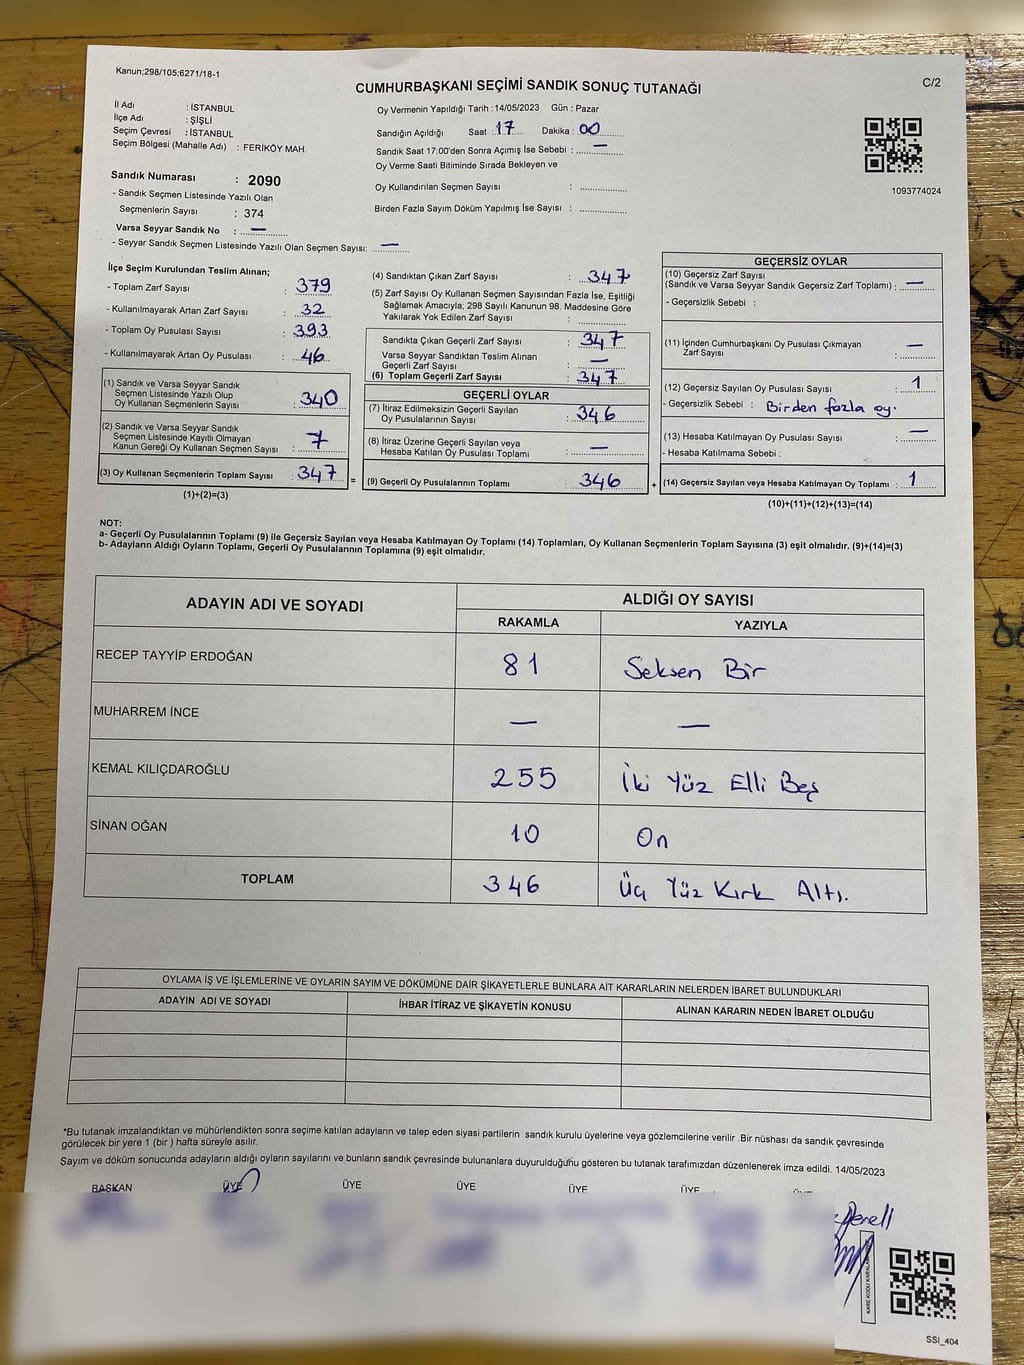 Kanun;298/105;6271/18-1
CUMHURBAŞKANI SEÇİMİ SANDIK SONUÇ TUTANAĞI
C/2
İl Adı : İSTANBUL
İlçe Adı : ŞİŞLİ
Seçim Çevresi : İSTANBUL
Seçim Bölgesi (Mahalle Adı) : FERİKÖY MAH.
Oy Vermenin Yapıldığı Tarih : 14/05/2023 Gün : Pazar
Sandığın Açıldığı Saat : 17 Dakika : 00
Sandık Saat 17:00'den Sonra Açımış İse Sebebi : —
Oy Verme Saati Bitiminde Sırada Bekleyen ve
Oy Kullandırılan Seçmen Sayısı :
Birden Fazla Sayım Döküm Yapılmış İse Sayısı :
1093774024
Sandık Numarası : 2090
- Sandık Seçmen Listesinde Yazılı Olan
Seçmenlerin Sayısı : 374
Varsa Seyyar Sandık No : —
- Seyyar Sandık Seçmen Listesinde Yazılı Olan Seçmen Sayısı: —
İlçe Seçim Kurulundan Teslim Alınan;
- Toplam Zarf Sayısı : 379
- Kullanılmayarak Artan Zarf Sayısı : 32
- Toplam Oy Pusulası Sayısı : 393
- Kullanılmayarak Artan Oy Pusulası : 46
(1) Sandık ve Varsa Seyyar Sandık
Seçmen Listesinde Yazılı Olup
Oy Kullanan Seçmenlerin Sayısı : 340
(2) Sandık ve Varsa Seyyar Sandık
Seçmen Listesinde Kayıtlı Olmayan
Kanun Gereği Oy Kullanan Seçmen Sayısı : 7
(3) Oy Kullanan Seçmenlerin Toplam Sayısı : 347
(1)+(2)=(3)
(4) Sandıktan Çıkan Zarf Sayısı : 347
(5) Zarf Sayısı Oy Kullanan Seçmen Sayısından Fazla İse, Eşitliği
Sağlamak Amacıyla; 298 Sayılı Kanunun 98. Maddesine Göre
Yakılarak Yok Edilen Zarf Sayısı :
Sandıkta Çıkan Geçerli Zarf Sayısı : 347
Varsa Seyyar Sandıktan Teslim Alınan
Geçerli Zarf Sayısı : —
(6) Toplam Geçerli Zarf Sayısı : 347
GEÇERLİ OYLAR
(7) İtiraz Edilmeksizin Geçerli Sayılan
Oy Pusulalarının Sayısı : 346
(8) İtiraz Üzerine Geçerli Sayılan veya
Hesaba Katılan Oy Pusulası Toplamı : —
= (9) Geçerli Oy Pusulalarının Toplamı : 346 +
GEÇERSİZ OYLAR
(10) Geçersiz Zarf Sayısı
(Sandık ve Varsa Seyyar Sandık Geçersiz Zarf Toplamı) : —
- Geçersizlik Sebebi :
(11) İçinden Cumhurbaşkanı Oy Pusulası Çıkmayan
Zarf Sayısı : —
(12) Geçersiz Sayılan Oy Pusulası Sayısı : 1
- Geçersizlik Sebebi : Birden fazla oy.
(13) Hesaba Katılmayan Oy Pusulası Sayısı : —
- Hesaba Katılmama Sebebi :
(14) Geçersiz Sayılan veya Hesaba Katılmayan Oy Toplamı : 1
(10)+(11)+(12)+(13)=(14)
NOT:
a- Geçerli Oy Pusulalarının Toplamı (9) ile Geçersiz Sayılan veya Hesaba Katılmayan Oy Toplamı (14) Toplamları, Oy Kullanan Seçmenlerin Toplam Sayısına (3) eşit olmalıdır. (9)+(14)=(3)
b- Adayların Aldığı Oyların Toplamı, Geçerli Oy Pusulalarının Toplamına (9) eşit olmalıdır.
ADAYIN ADI VE SOYADI
ALDIĞI OY SAYISI
RAKAMLA YAZIYLA
RECEP TAYYİP ERDOĞAN 81 Seksen Bir
MUHARREM İNCE — —
KEMAL KILIÇDAROĞLU 255 İki Yüz Elli Beş
SİNAN OĞAN 10 On
TOPLAM 346 Üç Yüz Kırk Altı.
OYLAMA İŞ VE İŞLEMLERİNE VE OYLARIN SAYIM VE DÖKÜMÜNE DAİR ŞİKAYETLERLE BUNLARA AİT KARARLARIN NELERDEN İBARET BULUNDUKLARI
ADAYIN ADI VE SOYADI İHBAR İTİRAZ VE ŞİKAYETİN KONUSU ALINAN KARARIN NEDEN İBARET OLDUĞU
*Bu tutanak imzalandıktan ve mühürlendikten sonra seçime katılan adayların ve talep eden siyasi partilerin sandık kurulu üyelerine veya gözlemcilerine verilir .Bir nüshası da sandık çevresinde
görülecek bir yere 1 (bir ) hafta süreyle asılır.
Sayım ve döküm sonucunda adayların aldığı oyların sayılarını ve bunların sandık çevresinde bulunanlara duyurulduğunu gösteren bu tutanak tarafımızdan düzenlenerek imza edildi. 14/05/2023
BAŞKAN ÜYE ÜYE ÜYE ÜYE ÜYE
SSI_404